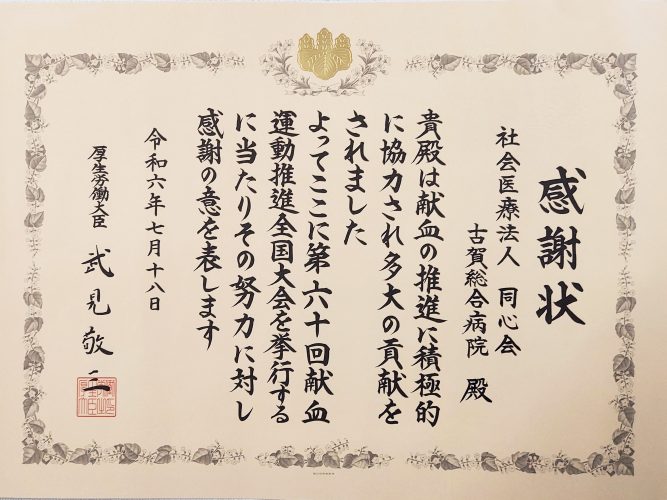 感謝状
社会医療法人 同心会
古賀総合病院 殿
貴殿は献血の推進に積極的
に協力され多大の貢献を
されました
よってここに第六十回献血
運動推進全国大会を挙行する
に当たりその努力に対し
感謝の意を表します
令和六年七月十八日
厚生労働大臣 武見敬三